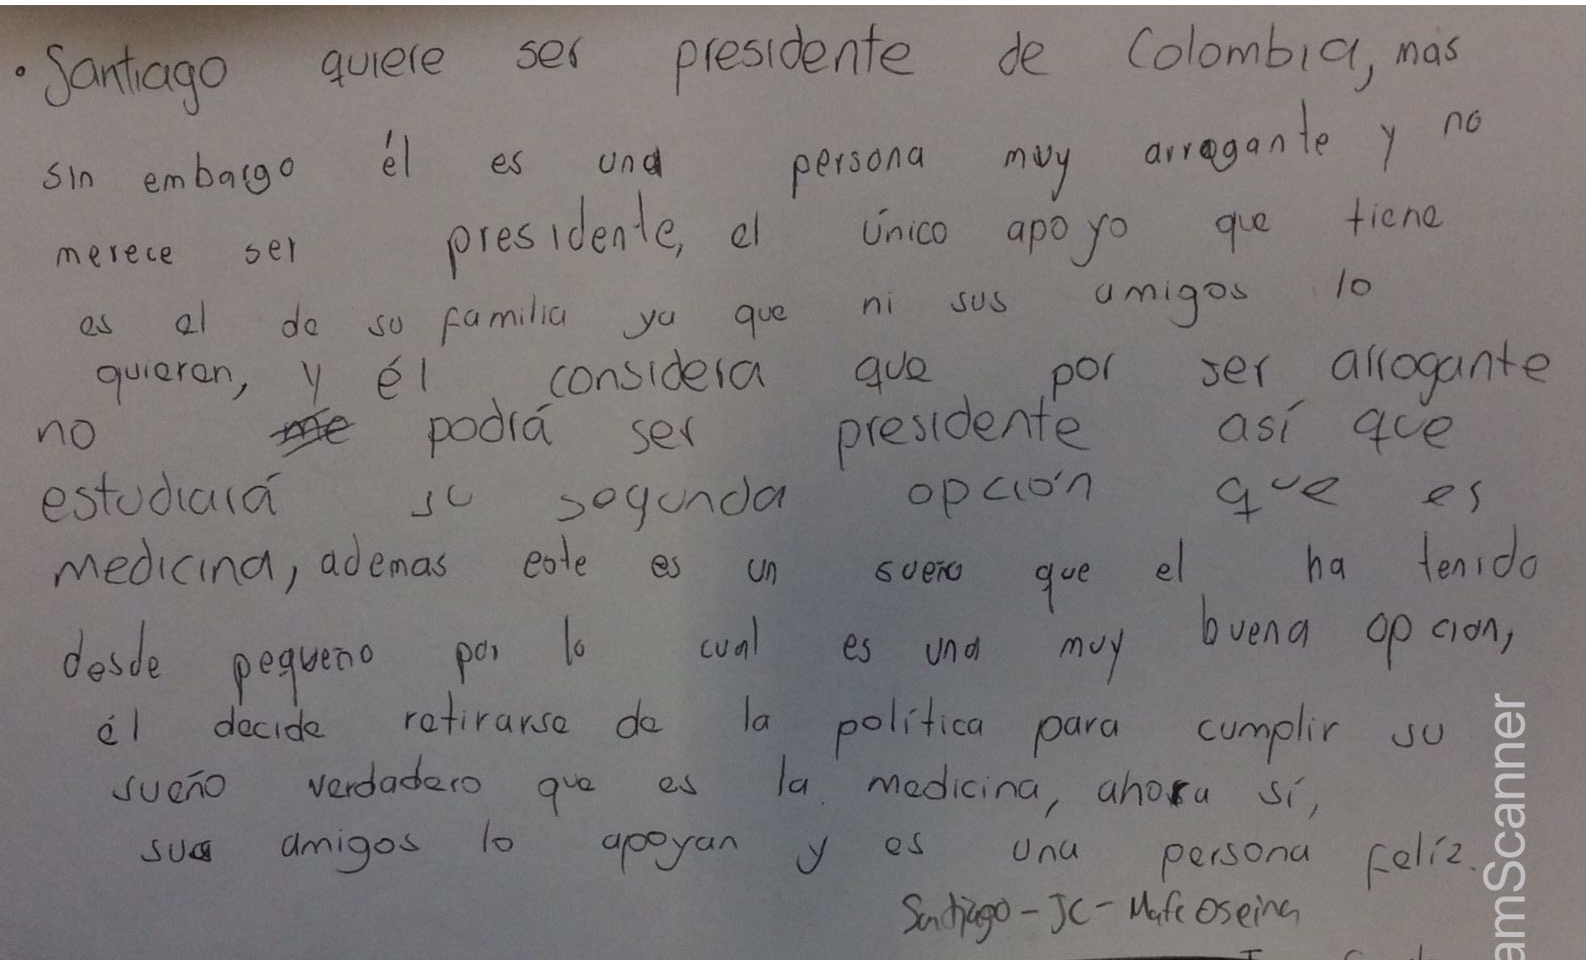 • Santiago quiere ser presidente de Colombia, mas
sin embargo él es una persona muy arrogante y no
merece ser presidente, el único apoyo que tiene
es el de su familia ya que ni sus amigos lo
quieren, y él considera que por ser arrogante
no podrá ser presidente así que
estudiará su segunda opción que es
medicina, ademas este es un sueño que el ha tenido
desde pequeño por lo cual es una muy buena opcion,
él decide retirarse de la política para cumplir su
sueño verdadero que es la medicina, ahora sí,
sus amigos lo apoyan y es una persona felíz.
Santiago - JC - Mafe
amScanner